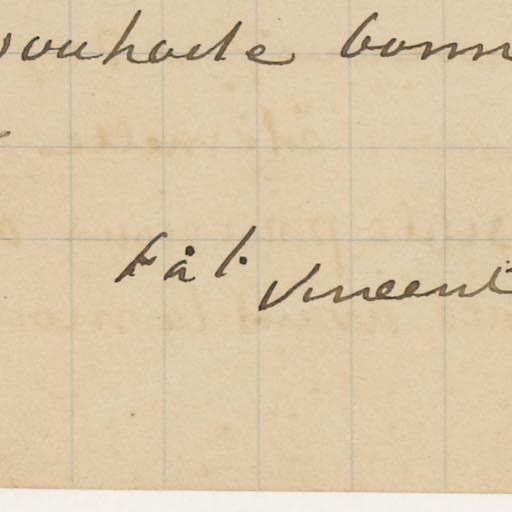 souhaite bonn
t. à t. Vincent